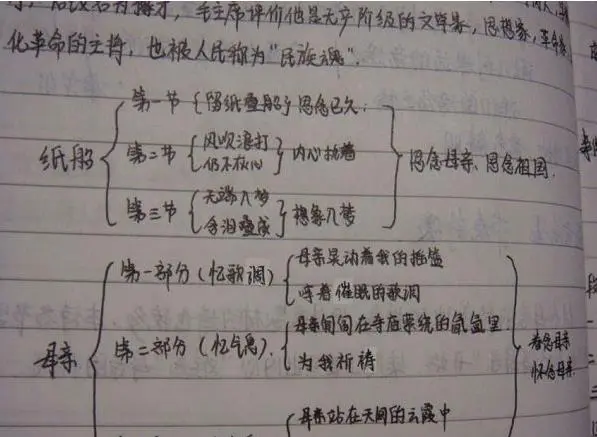 后改名为樟才，毛主席评价他是无产阶级的文学家，思想家，革命家
化革命的主将，也被人民称为"民族魂".
纸船
第一节 留纸叠船 思念已久.
第二节 风吹浪打 仍不灰心 内心执着
第三节 无端入梦 含泪叠成 想象入梦
思念母亲、思念祖国.
母亲
第一部分（忆歌调） 母亲晃动着我的摇篮
哼着催眠的歌调
第二部分（忆气息）. 母亲闻闻在寺庙萦绕的氤氲里
为我祈祷
眷念母亲
怀念母亲
母亲站在天阔的云霞中